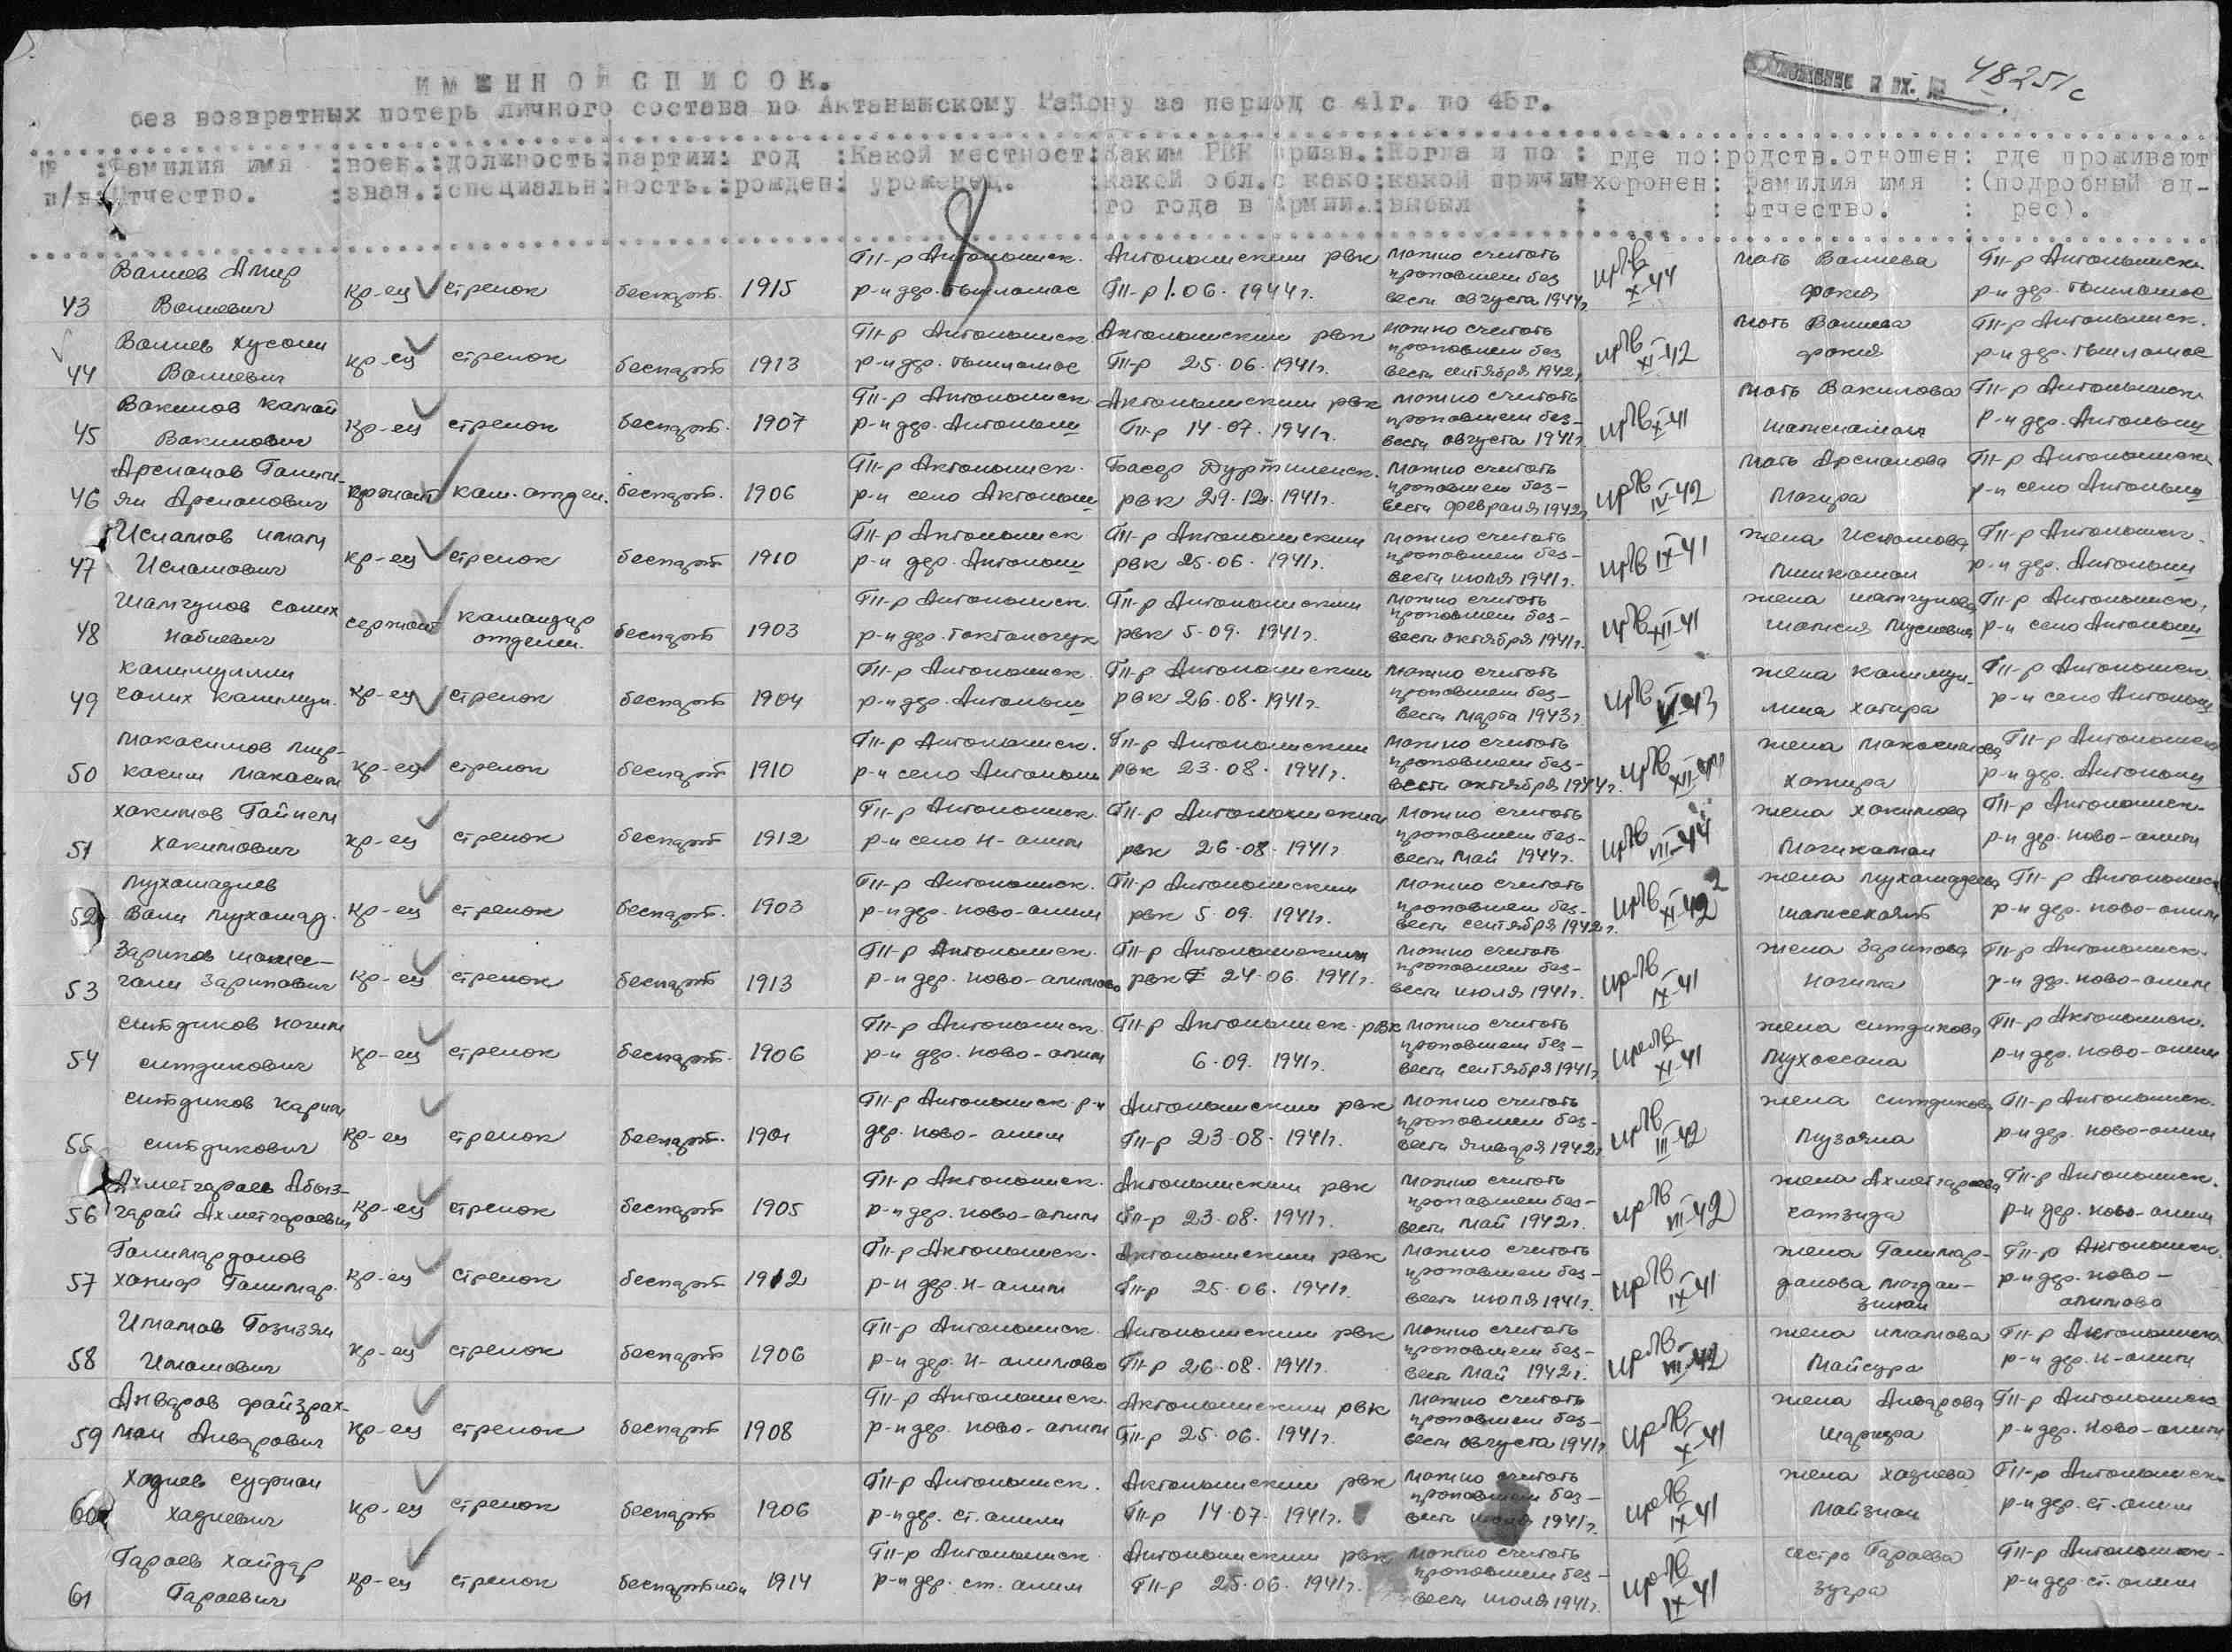 ИМЕННОЙ СПИСОК.
без возвратных потерь личного состава по Актанышскому Району за период с 41г. по 45г.
Приложение к вх. № 4825/с
8
№ п/п
Фамилия имя
отчество.
воен.
зван.
должность
специальн
партий
ность.
год
рожден
Какой местност
уроженец.
Каким РВК призв.
какой обл.с како
го года в Армии.
Когда и по
какой причин
выбыл
где по
хоронен
родств.отношен
фамилия имя
отчество.
где проживают
(подробный ад-
рес).
43 Валиев Амир Валиевич кр-ец стрелок беспарт. 1915 ТП-р Актанышск. р-н дер. Тышламас Актанышский рвк ТП-р 1.06.1944г. можно считать пропавшем без вести августа 1944г. прпв X-44 мать Валиева факия ТП-р Актанышск. р-н дер. Тышламас
44 Валиев Хусаин Валиевич кр-ец стрелок беспарт 1913 ТП-р Актанышск р-н дер. Тышламас Актанышский рвк ТП-р 25.06.1941г. можно считать пропавшем без вести сентября 1942г прпв XI-42 мать Валиева факия ТП-р Актанышск. р-н дер. Тышламас
45 Вакилов Вакилович кр-ец стрелок беспарт. 1907 ТП-р Актанышск р-н дер. Актаныш Актанышский рвк ТП-р 14.07.1941г. можно считать пропавшем без- вести августа 1941г прпв X-41 мать Вакилова ТП-р Актанышск р-н дер. Актаныш
46 Арсланов Галим- ян Арсланович сержант ком. отдел. беспарт. 1906 ТП-р Актанышск. р-н село Актаныш Басср Дуртилинск. рвк 29.12.1941г. можно считать пропавшем без- вести февраля 1942г прпв IV-42 мать Арсланова Магира ТП-р Актанышск р-н село Актаныш
47 Исламов имам Исламович кр-ец стрелок беспарт 1910 ТП-р Актанышск р-н дер. Актаныш ТП-р Актанышский рвк 25.06.1941г. можно считать пропавшем без- вести июля 1941г. прпв IX-41 жена Исламова ТП-р Актанышск. р-н дер. Актаныш
48 Шамгунов Салих Набиевич сержант командир отделен. беспарт 1903 ТП-р Актанышск. р-н дер. Такталачук ТП-р Актанышский рвк 5.09.1941г. можно считать пропавшем без- вести октября 1941г. прпв XII-41 жена шамгунова ТП-р Актанышск. р-н село Актаныш
49 Калимуллин Салих Калимул. кр-ец стрелок беспарт 1904 ТП-р Актанышск. р-н дер. Актаныш ТП-р Актанышский рвк 26.08.1941г. можно считать пропавшем без- вести марта 1943г. прпв VI-43 жена Калимул- лина Хатира ТП-р Актанышск. р-н село Актаныш
50 Макасимов Мир- касим Макасим кр-ец стрелок беспарт 1910 ТП-р Актанышск. р-н село Актаныш ТП-р Актанышский рвк 23.08.1941г. можно считать пропавшем без- вести октября 1944г. прпв XII-44 жена Макасимова ТП-р Актанышск р-н дер. Актаныш
51 Хакимов Хакимович кр-ец стрелок беспарт 1912 ТП-р Актанышск. р-н село Н-алим ТП-р Актанышский рвк 26.08.1941г. можно считать пропавшем без- вести май 1944г. прпв VII-44 жена Хакимова Магикамал ТП-р Актанышск. р-н дер. ново-алим
52 Мухамадиев Вали Мухамад. кр-ец стрелок беспарт. 1903 ТП-р Актанышск. р-н дер. ново-алим ТП-р Актанышский рвк 5.09.1941г. можно считать пропавшем без- вести сентября 1942г. прпв XI-42 2 жена Мухамадиева ТП-р Актанышск р-н дер. ново-алим
53 Зарипов гали Зарипович кр-ец стрелок беспарт 1913 ТП-р Актанышск. р-н дер. ново-алимово ТП-р Актанышский рвк 24.06.1941г. можно считать пропавшем без- вести июля 1941г. прпв IX-41 жена Зарипова Нагима ТП-р Актанышск. р-н дер. ново-алим
54 Ситдиков Нагим ситдикович кр-ец стрелок беспарт. 1906 ТП-р Актанышск. р-н дер. ново-алим ТП-р Актанышск. рвк 6.09.1941г. можно считать пропавшем без- вести сентября 1941г прпв XI-41 жена ситдикова ТП-р Актанышск. р-н дер. ново-алим
55 Ситдиков Карим ситдикович кр-ец стрелок беспарт. 1901 ТП-р Актанышск. р-н дер. ново-алим Актанышский рвк ТП-р 23.08.1941г. можно считать пропавшем без- вести января 1942г прпв III-42 жена ситдикова Музаяна ТП-р Актанышск. р-н дер. ново-алим
56 Ахметгараев Абыз- гарай Ахметгараевич кр-ец стрелок беспарт 1905 ТП-р Актанышск. р-н дер. ново-алим Актанышский рвк ТП-р 23.08.1941г. можно считать пропавшем без- вести май 1942г. прпв VII-42 жена Ахметгараева ТП-р Актанышск. р-н дер. ново-алим
57 Галимарданов Галимар. кр-ец стрелок беспарт 1912 ТП-р Актанышск. р-н дер. Н-алим Актанышский рвк ТП-р 25.06.1941г. можно считать пропавшем без- вести июля 1941г. прпв IX-41 жена Галимар- данова ТП-р Актанышск. р-н дер. ново- алимово
58 Имамов Газизян Имамович кр-ец стрелок беспарт 1906 ТП-р Актанышск. р-н дер. Н-алимово Актанышский рвк ТП-р 26.08.1941г. можно считать пропавшем без- вести май 1942г. прпв VII-42 жена имамова Майсура ТП-р Актанышск р-н дер. Н-алим
59 Анваров файзрах- ман Анварович кр-ец стрелок беспарт 1908 ТП-р Актанышск. р-н дер. ново-алим Актанышский рвк ТП-р 25.06.1941г. можно считать пропавшем без- вести августа 1941г прпв X-41 жена Анварова ТП-р Актанышск р-н дер. ново-алим
60 Хадиев Суфиан Хадиевич кр-ец стрелок беспарт 1906 ТП-р Актанышск. р-н дер. ст.алим Актанышский рвк ТП-р 14.07.1941г. можно считать пропавшем без- вести 1941г. прпв IX-41 жена Хадиева ТП-р Актанышск р-н дер. ст.алим
61 Гараев Хайдар Гараевич кр-ец стрелок 1914 ТП-р Актанышск р-н дер. ст.алим Актанышский рвк ТП-р 25.06.1941г. можно считать пропавшем без- вести июля 1941г. прпв IX-41 сестра Гараева Зугра ТП-р Актанышск- р-н дер. ст.алим